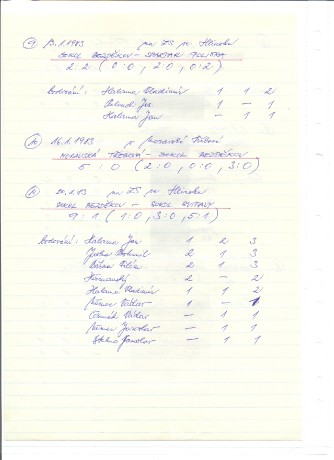 9) 13.1.1983 na ZS v Hlinsku
SOKOL BEZDĚKOV - SPARTAK POLIČKA
2:2 (0:0, 2:0, 0:2)
bodování: Halama Vladimír 1 1 2
Jan 1 - 1
Halama Jan - 1 1
10) 16.1.1983 v Moravské Třebové
MORAVSKÁ TŘEBOVÁ - SOKOL BEZDĚKOV
5:0 (2:0, 0:0, 3:0)
11) 20.1.83 na ZS v Hlinsku
SOKOL BEZDĚKOV - SOKOL
9:1 (1:0, 3:0, 5:1)
bodování: Halama Jan 1 2 3
Bohumil 2 1 3
2 1 3
2 - 2
Halama Vladimír 1 1 2
Němec Václav 1 - 1
Čermák Václav - 1 1
Němec Jaroslav - 1 1
Jaroslav - 1 1